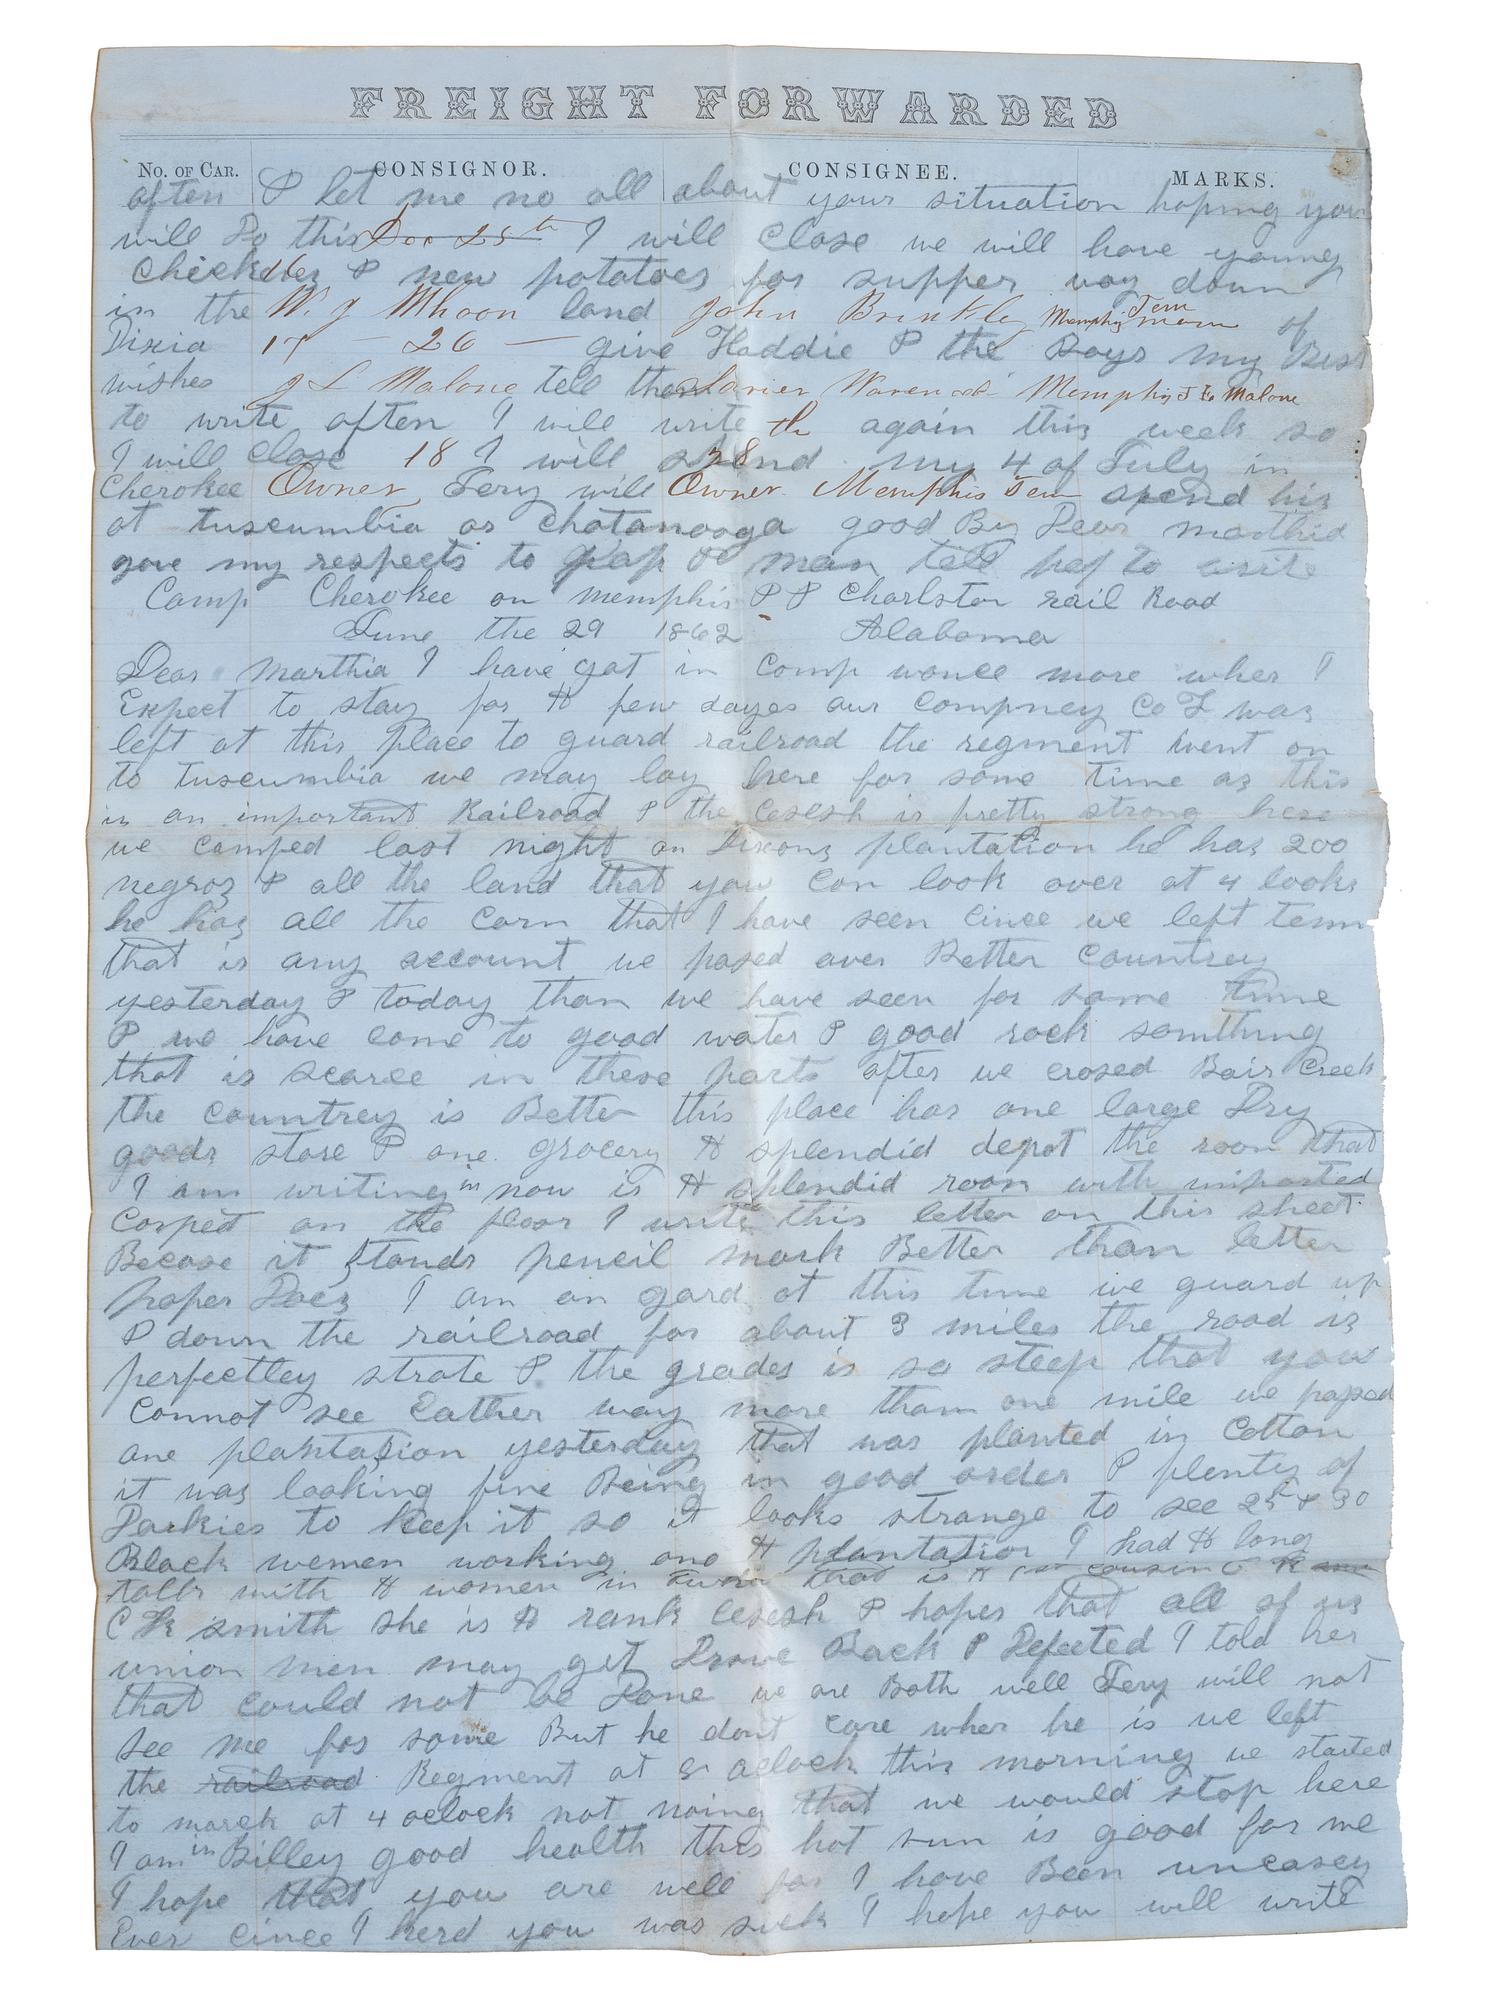 FREIGHT FORWARDED
No. of Car. CONSIGNOR. CONSIGNEE. MARKS.
often & let me no all about your situation hoping you
will Do this Dec 25th I will Close we will have young
Chickens & new potatoes for supper way down
in the W. J Mhoon land John Brinkley Memphis Tenn of
Dixia 17 - 26 - give Haddie & the Boys my Best
wishes J L Malone tell them Memphis Malone
to write often I will write th again this week so
I will Close 18 I will 28 spend my 4 of July in
Cherokee Owner Jery will Owner Memphis Tenn spend his
at tuscumbia or Chatanooga good By Dear marthia
give my respects to pap & mam tell hef to write
Camp Cherokee on memphis & Charlston rail Road
June the 29 1862 Alabama
Dear Marthia I have got in Camp wonce more wher I
Expect to stay for A few dayes our Compney Co I was
left at this place to guard railroad the regment went on
to tuscumbia we may lay here for some time as this
is an important Railroad & the Cesesh is pretty strong here
we camped last night on Dixons plantation he has 200
negroz & all the land that you Can look over at 4 looks
he has all the Corn that I have seen Cince we left tenn
that is any account we pased over Better Countrey
yesterday & today than we have seen for some time
& we have come to good water & good rock somthing
that is scarce in these parts after we crosed Bair Creek
the Countrey is Better this place has one large Dry
goods store & one grocery A splendid depot the room that
I am writing in now is A splendid room with imported
Corpet on the floor I write this letter on this sheet
Becase it Stands pencil mark Better than letter
paper Does I am on gard at this time we guard up
& down the railroad for about 3 miles the road is
perfectley strate & the grades is so steep that you
Connot see Eather way more tham one mile we pased
one plantation yesterday that was planted in Cotton
it was looking fine Being in good order & plenty of
Darkies to keep it so it looks strange to see 25 & 30
Black wemen working one A plantation I had A long
talk with A women in that is A cousin
C K smith she is A rank Cesesh & hopes that all of us
union men may get Drove Back & Defeted I told her
that could not be Done we are Both well Jery will not
see me for some But he dont care wher he is we left
the railroad Regment at 8 oclock this morning we started
to march at 4 oclock not noing that we would stop here
I am in Billey good health this hot sun is good for me
I hope that you are well for I have Been uneasey
Ever Cince I herd you was sick I hope you will write